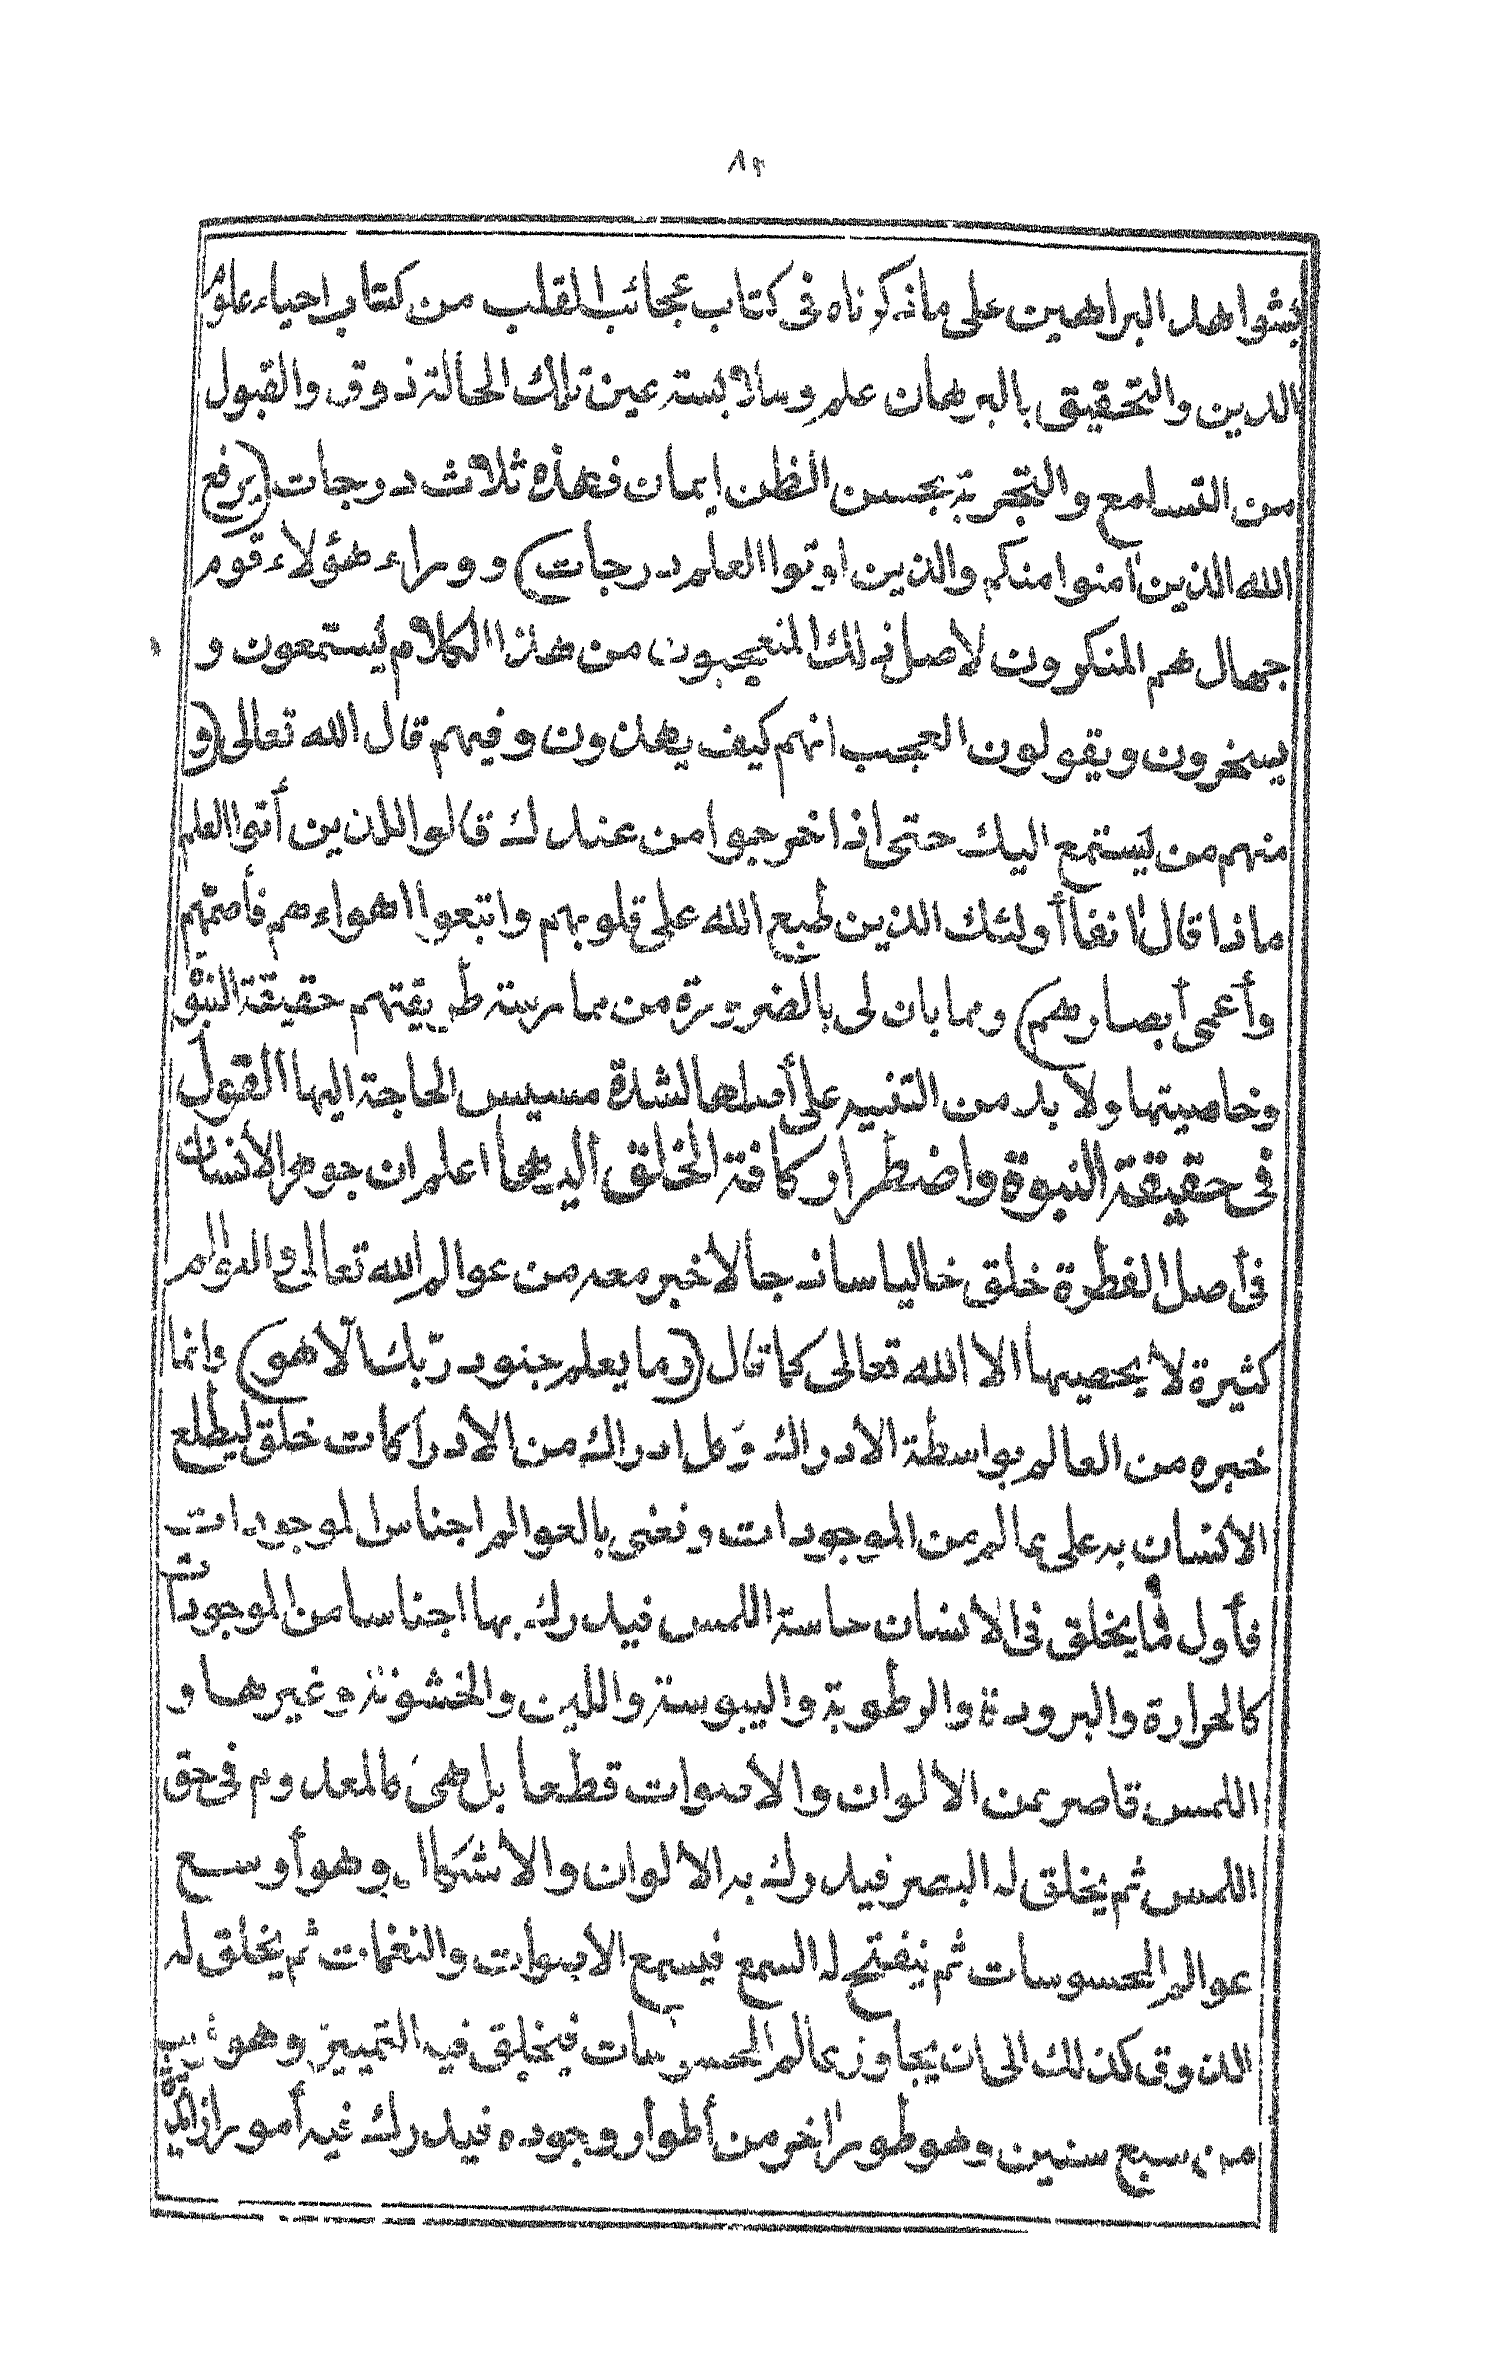 ٨٢
بشواهد البراهين على ماذكرناه فى كتاب عجائب القلب من كتاب احياء علوم
الدين والتحقيق بالبرهان علم وملابسة عين تلك الحالة ذوق والقبول
من التسامع والتجربة بحسن الظن إيمان فهذه ثلاث درجات (يرفع
الله الذين اٰمنوا منكم والذين اوتوا العلم درجات) ووراء هؤلاء قوم
جهال هم المنكرون لاصل ذلك المتعجبون من هذا الكلام يستمعون و
يسخرون ويقولون العجب انهم كيف يهذون وفيهم قال الله تعالى (و
منهم من يستمع اليك حتى اذا خرجوا من عندك قالوا للذين أتوا العلم
ماذا قال اٰنفا أولئك الذين طبع الله على قلوبهم واتبعوا اهواءهم فأصمّهم
وأعمى أبصارهم) ومما بان لى بالضرورة من ممارسة طريقتهم حقيقة النبوّة
وخاصيتها ولا بد من التنبيه على أصلها لشدة مسيس الحاجة اليها القول
فى حقيقة النبوة واضطرار كافة الخلق اليها اعلم ان جوهر الأنسان
فى أصل الفطرة خلق خاليا ساذجا لا خبر معه من عوالم الله تعالى والعوالم
كثيرة لا يحصيها الا الله تعالى كما قال (وما يعلم جنود ربّك الّا هو) وانما
خبره من العالم بواسطة الادراك وكل ادراك من الادراكات خلق ليطلع
الانسان به على عالم من الموجودات ونعنى بالعوالم اجناس الموجودات
فأول ما يخلق فى الانسان حاسة اللمس فيدرك بها اجناسا من الموجودات
كالحرارة والبرودة والرطوبة واليبوسة واللين والخشونة وغيرها و
اللمس قاصر عن الالوان والاصوات قطعا بل هى كالمعدوم فى حق
اللمس ثم يخلق له البصر فيدرك به الالوان والاشكال وهو أوسع
عوالم المحسوسات ثم ينفتح له السمع فيسمع الاصوات والنغمات ثم يخلق له
الذوق كذلك الى ان يجاوز عالم المحسوسات فيخلق فيه التمييز وهو قريب
من سبع سنين وهو طور اٰخر من أطوار وجوده فيدرك فيه أمورا زائدة